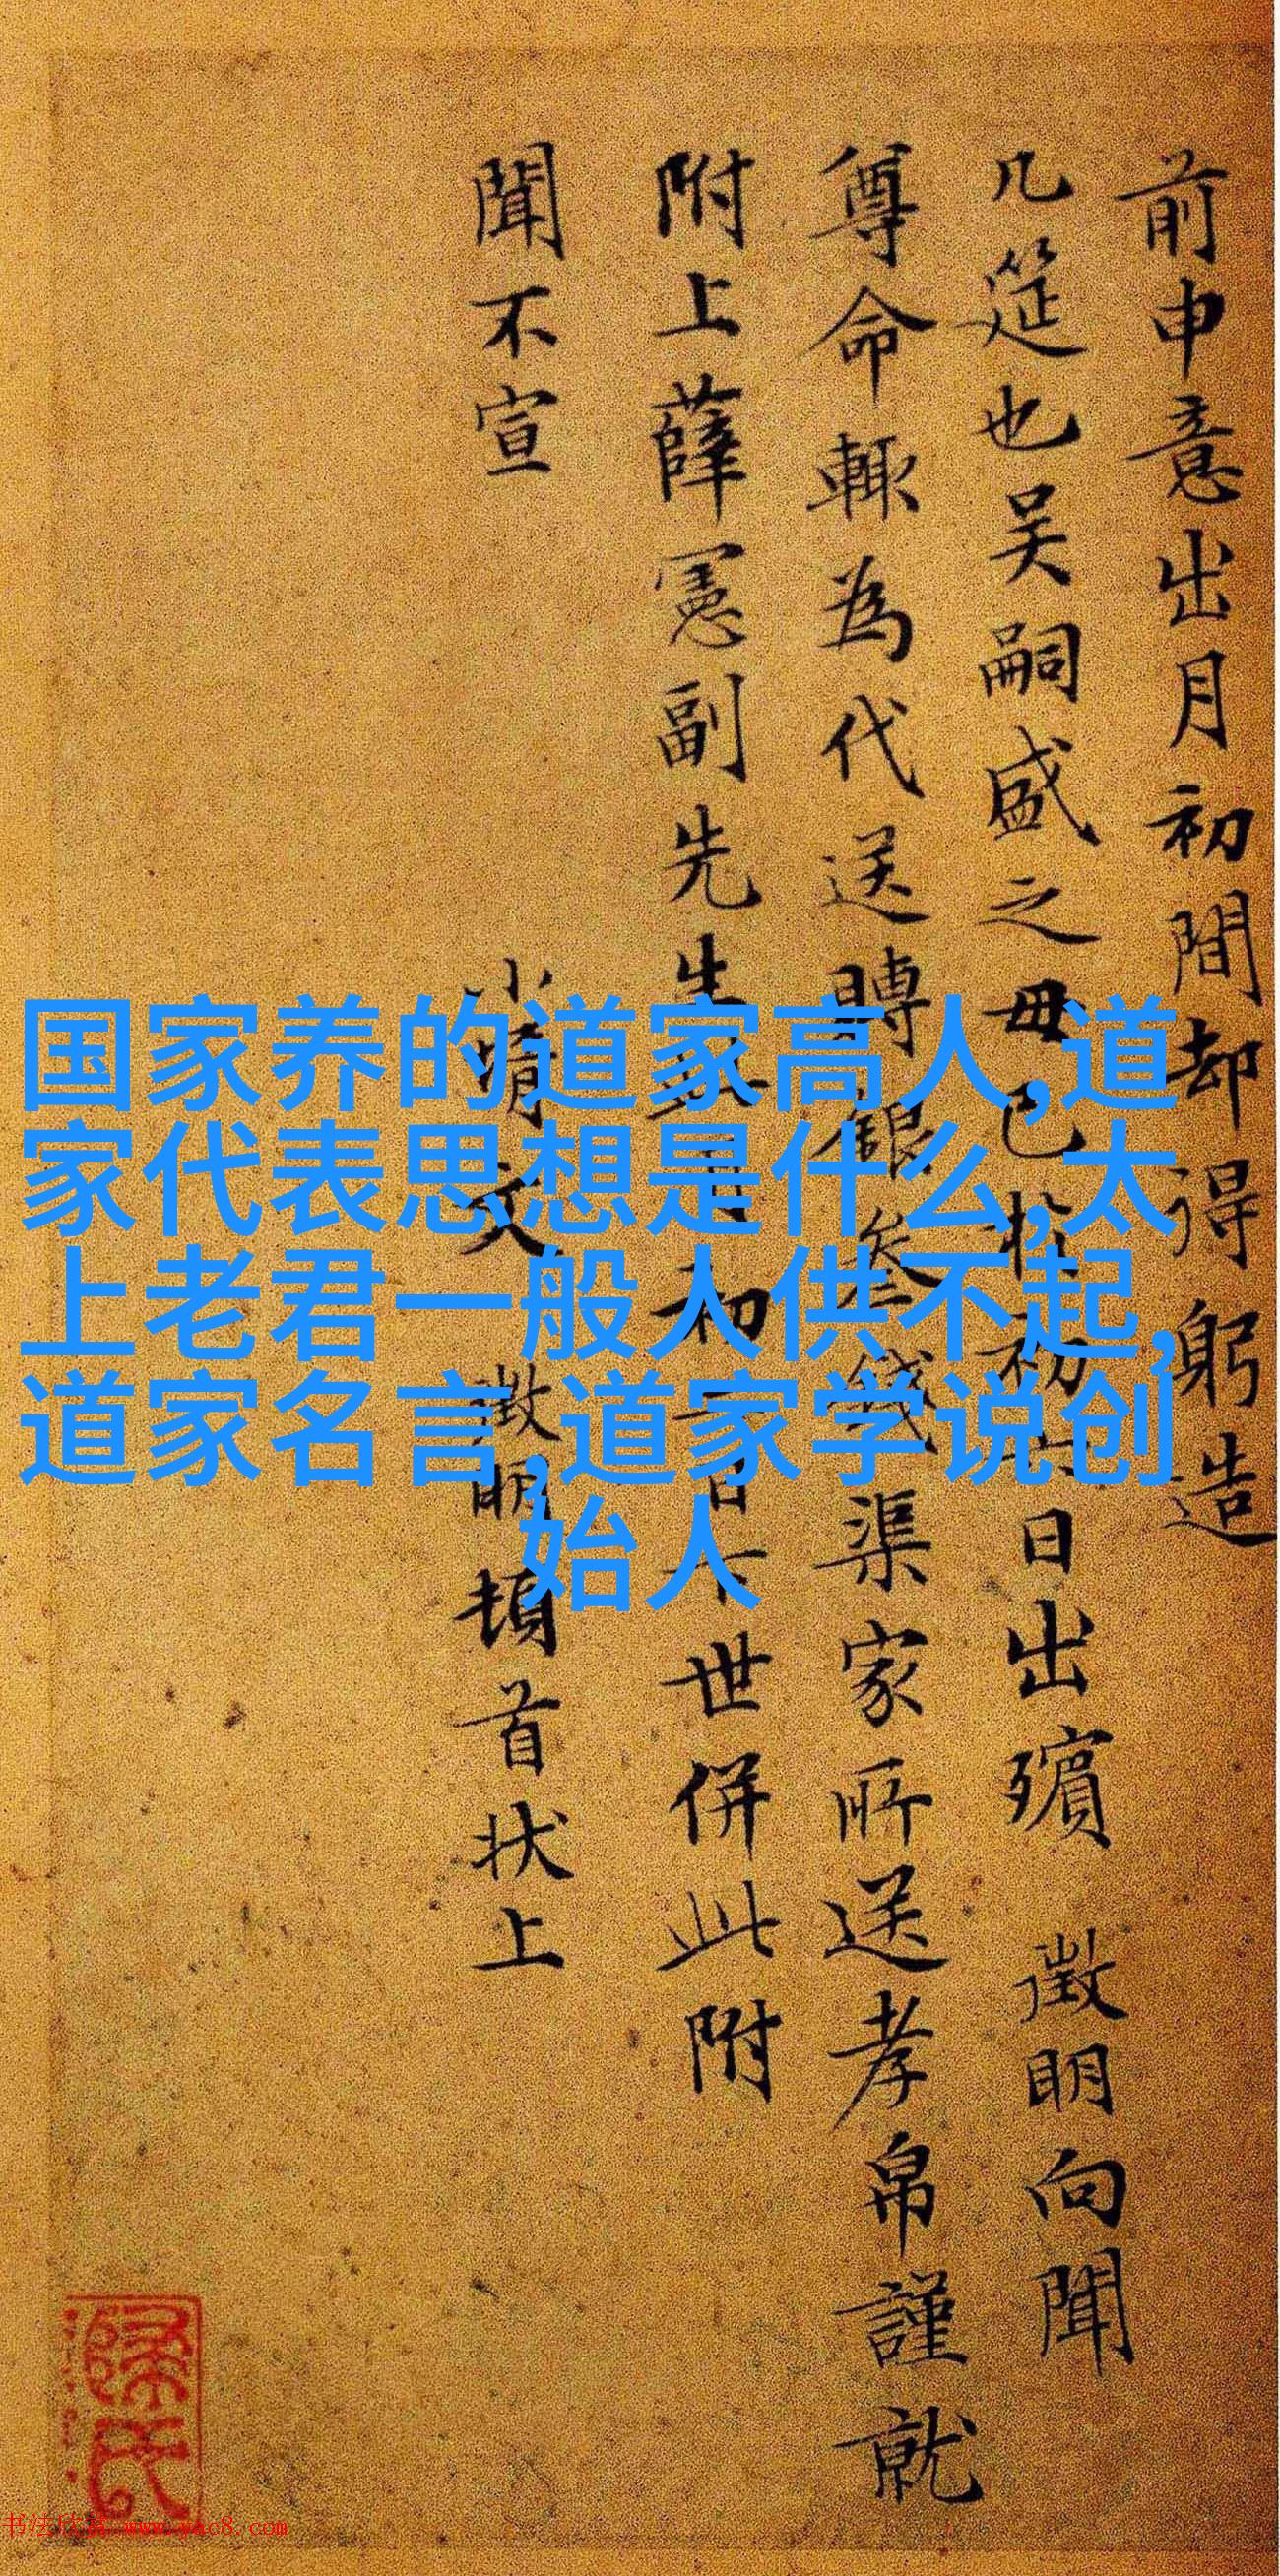 前申意出月初間却得躬造
几筵也吴嗣盛之毋已於初六日出殯 徵明向聞
尊命輙為代送賻銀叁錢渠家所送孝帛謹就
附上薛憲副先生
初
日
世併此附
聞不宣
小壻文 徵明頓首狀上
国家养的道家高人,道
家代表思想是什么,太
上老君一般人供不起,
道家名言,道家学说创
始人
书法欣赏 www.yac8.com